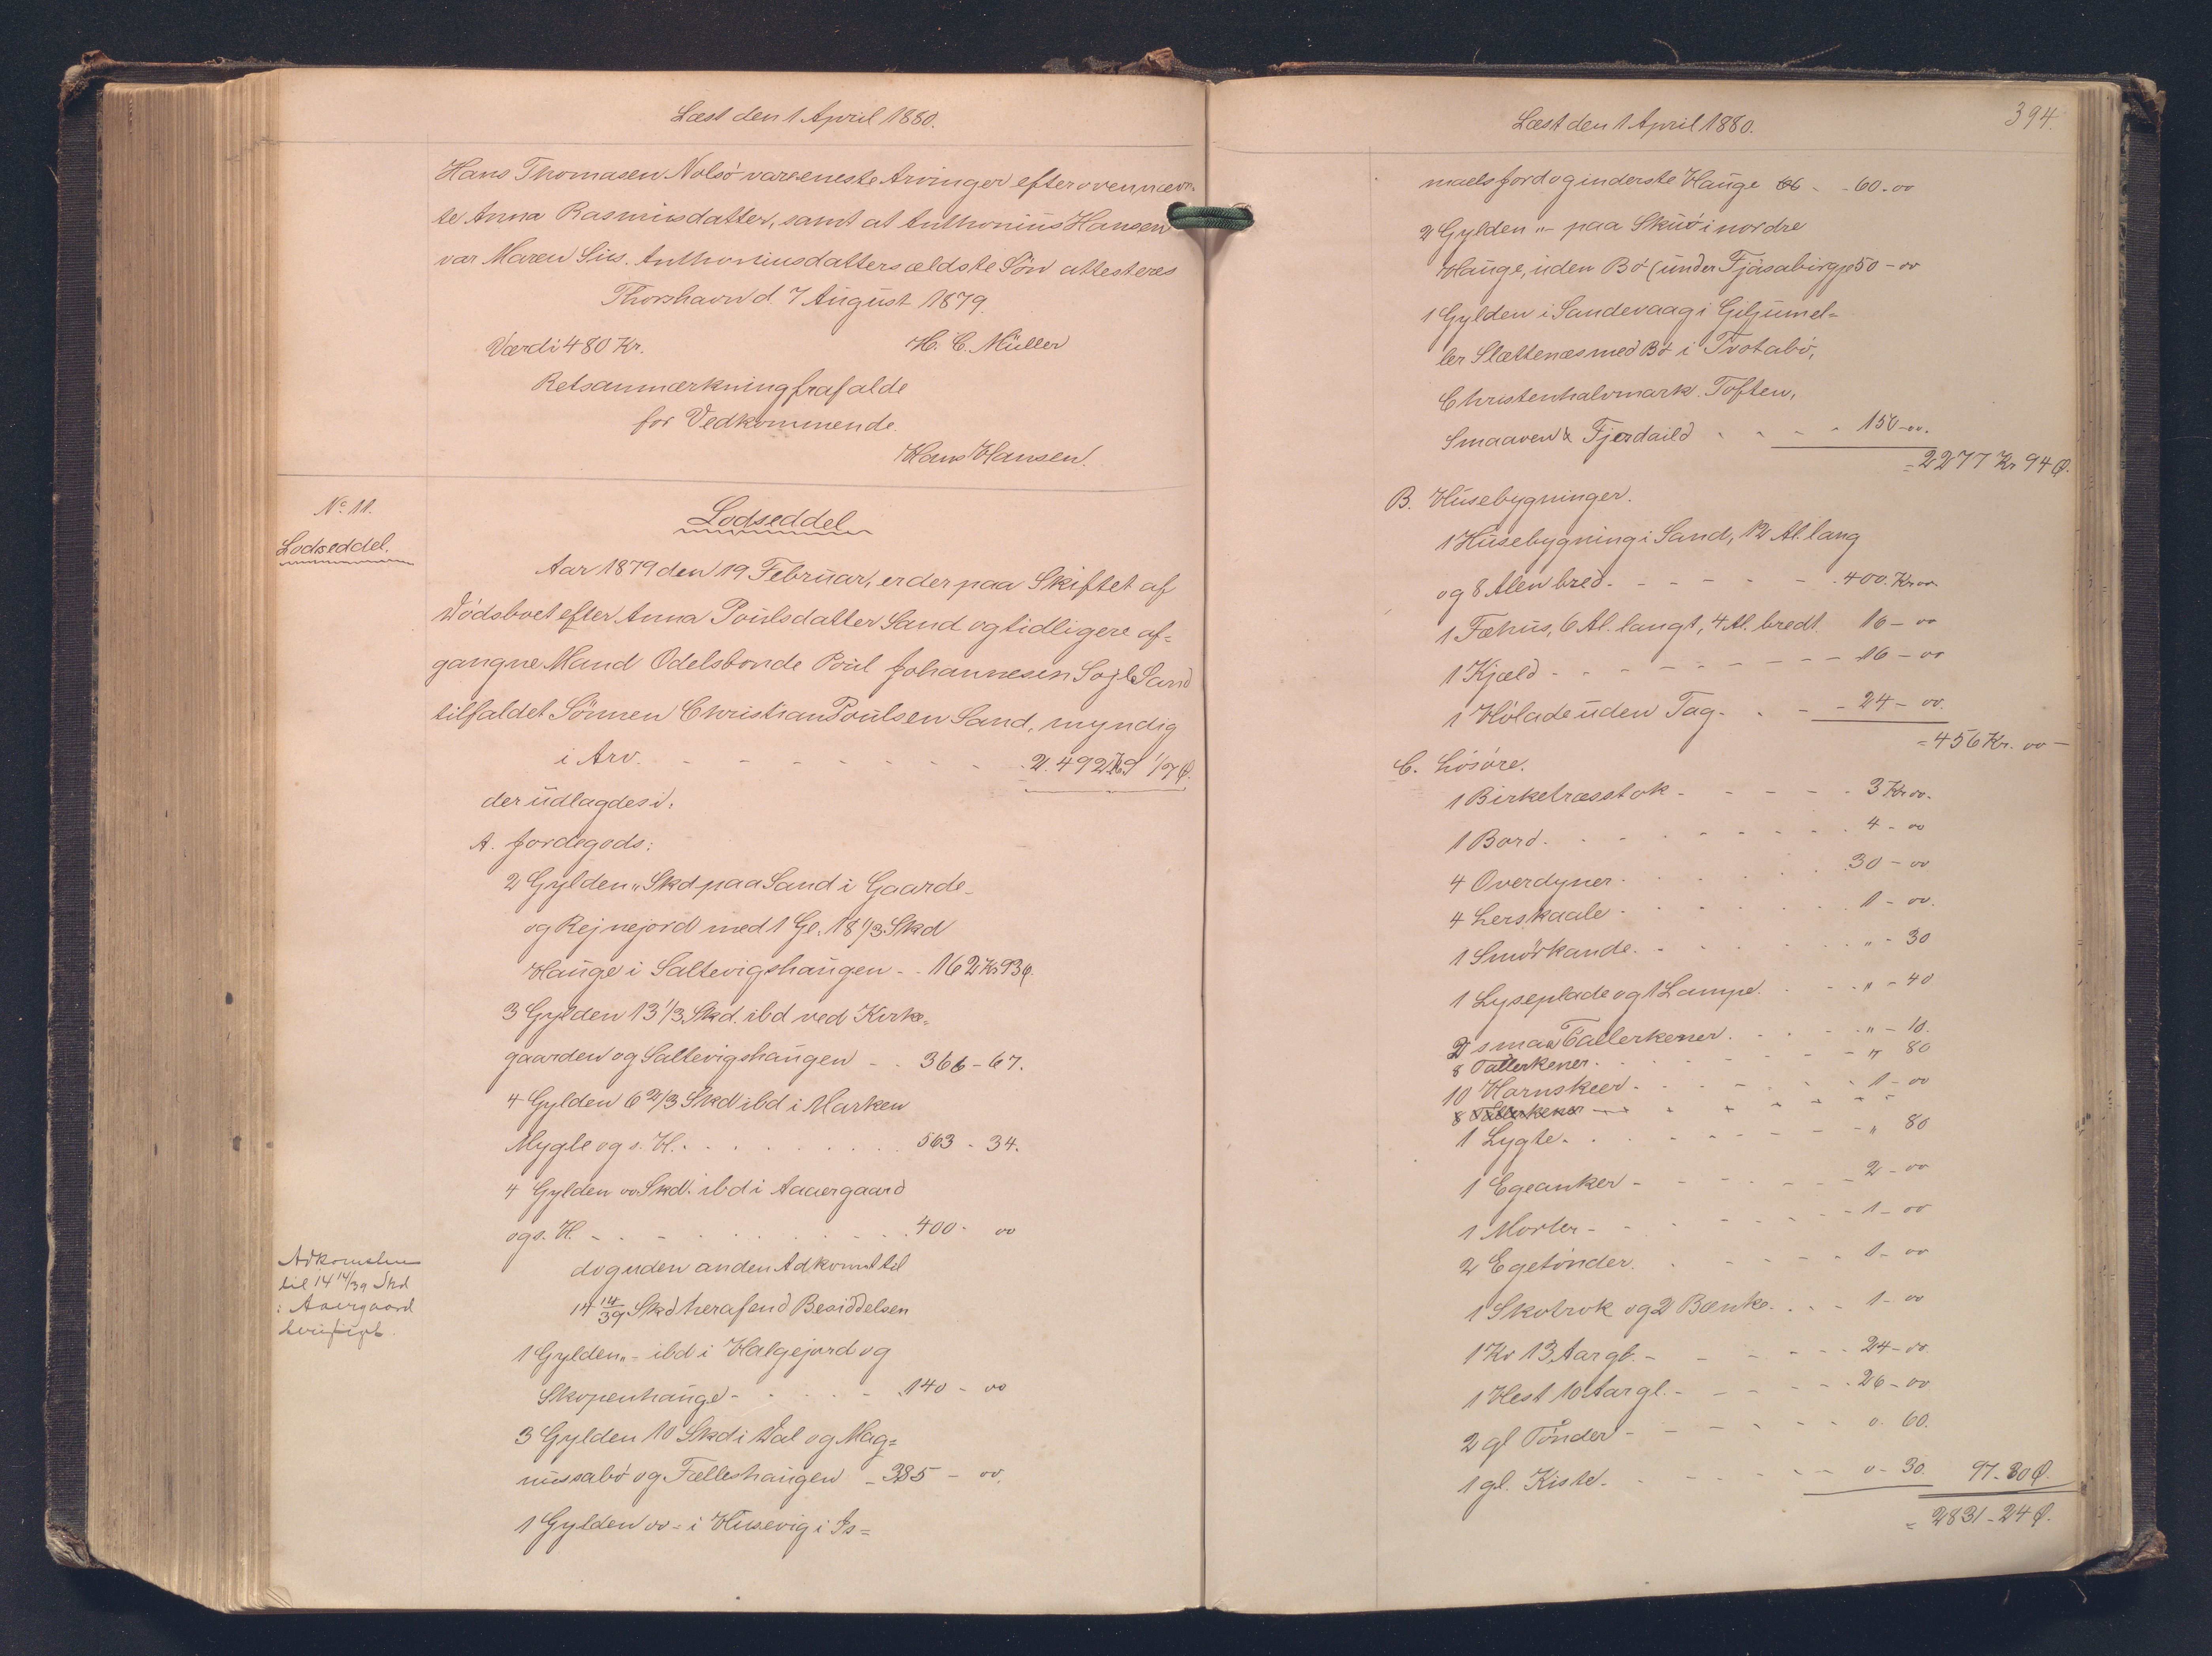 Læst den 1 April 1880.
Hans Thomasen Nolsö vare eneste Arvinger efter ovennævn-
te Anna Rasmusdatter, samt at Anthonius Hansen
var Maren Sus. Anthoniusdatters ældste Sön attesteres
Thorshavn d. 7 August 1879.
Værdi 480 Kr.
H. C. Müller
Retsanmærkning frafalde
for Vedkommende.
Hans Hansen.
No 11.
Lodseddel.
Lodseddel
Aar 1879 den 19 Februar, er der paa Skiftet af
Dödsboet efter Anna Poulsdatter Sand og tidligere af-
gangne Mand Odelsbonde Poul Johannesen Sand
tilfaldet Sönnen Christian Poulsen Sand, myndig
i Arv. - - - - - - - - 2.492 K 9 1/7 Ø.
der udlagdes i.
A. Jordegods:
2 Gylden „ Skd paa Sand i Gaarde-
og Rejnejord med 1 Gl. 18 1/3 Skd
Hauge i Saltevigshaugen - - 162 Kr 93 Ø.
3 Gylden 13 1/3 Skd. ibd ved Kirke-
gaarden og Saltevigshaugen - - 366 - 67.
4 Gylden 6 2/3 Skd ibd i Marken
Mygle og s. H. - - - - - 563 - 34.
4 Gylden oo Skd. ibd i Aaaergaard
og s. H. - - - - - - 400 - oo
dog uden anden Adkomst til
14 14/39 Skd heraf end Besiddelsen
Adkomsten
til 14 14/39 Skd
i Aaergaard
1 Gylden „ - ibd i Halgejord og
Skopenhauge - - - - 140 - oo
3 Gylden 10 Skd i Dal og Mag=
nussabö og Fælleshaugen - 385 - oo.
1 Gylden oo - i Husevig i Is=
Læst den 1 April 1880.
394.
maels jord og inderste Hauge - - 60. oo
2 Gylden „ - paa Skuö i nordre
Hauge, uden Bö (under Fjäsabirgje 50 - oo
1 Gylden i Sandevaag i Giljumel=
ler Slættenæs med Bö i Tvotabö,
Christenhalvmark. Toften,
Smaaven & Fjerdaild - - - - 150 - oo.
= 2277 Kr 94 Ø.
B. Husebygninger.
1 Husebygning i Sand, 12 Al. lang
og 8 Alen bred. - - - - - 400. Kr oo.
1 Fæhus, 6 Al. langt, 4 Al. bredt 16 - oo
1 Kjæld - - - - - - - 16 - oo
1 Hölade uden Tag - - - - 24 - oo.
= 456 Kr. oo -
C. Lösöre.
1 Birketræsstok - - - - - 3 Kr oo.
1 Bord. - - - - - - 4 - oo
4 Overdyner. - - - - - 30 - oo
4 Lerskaale - - - - - 1 - oo.
1 Smörkande. - - - - - „ - 30
1 Lyseplade og 1 Lampe. - - - „ - 40
2 smaa Tallerkener. - - - - „ - 10.
8 Tallerkener. - - - - - „ 80
10 Harnskeer - - - - - 1 - oo
8 Tallerkener
1 Lygte - - - - - - „ 80
1 Egeanker - - - - - 2 - oo
1 Morter - - - - - - 1 - oo
2 Egetönder. - - - - - 1 - oo
1 Skotrok og 2 Bænke. - - - 1 - oo
1 Ko 13 Aar gl. - - - - 24 - oo.
1 Hest 10 Aar gl. - - - - 26 - oo
2 gl Tönder - - - - - o. 60.
1 gl. Kiste. - - - - - o - 30. 97 - 30 Ø.
= 2831 - 24 Ø.